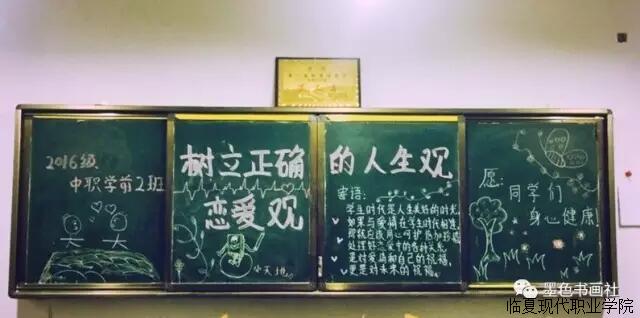 2016级
中职学前2班
树立正确的人生观
恋爱观
寄语:
学生时代是人生美好的时光
如果与爱情在学生时代相遇
那就应该用心呵护
处理好恋爱中的各种关系
是对爱情和自己的祝福
更是对未来的祝福
愿:
同学们
身心健康
墨色书画社
临夏现代职业学院